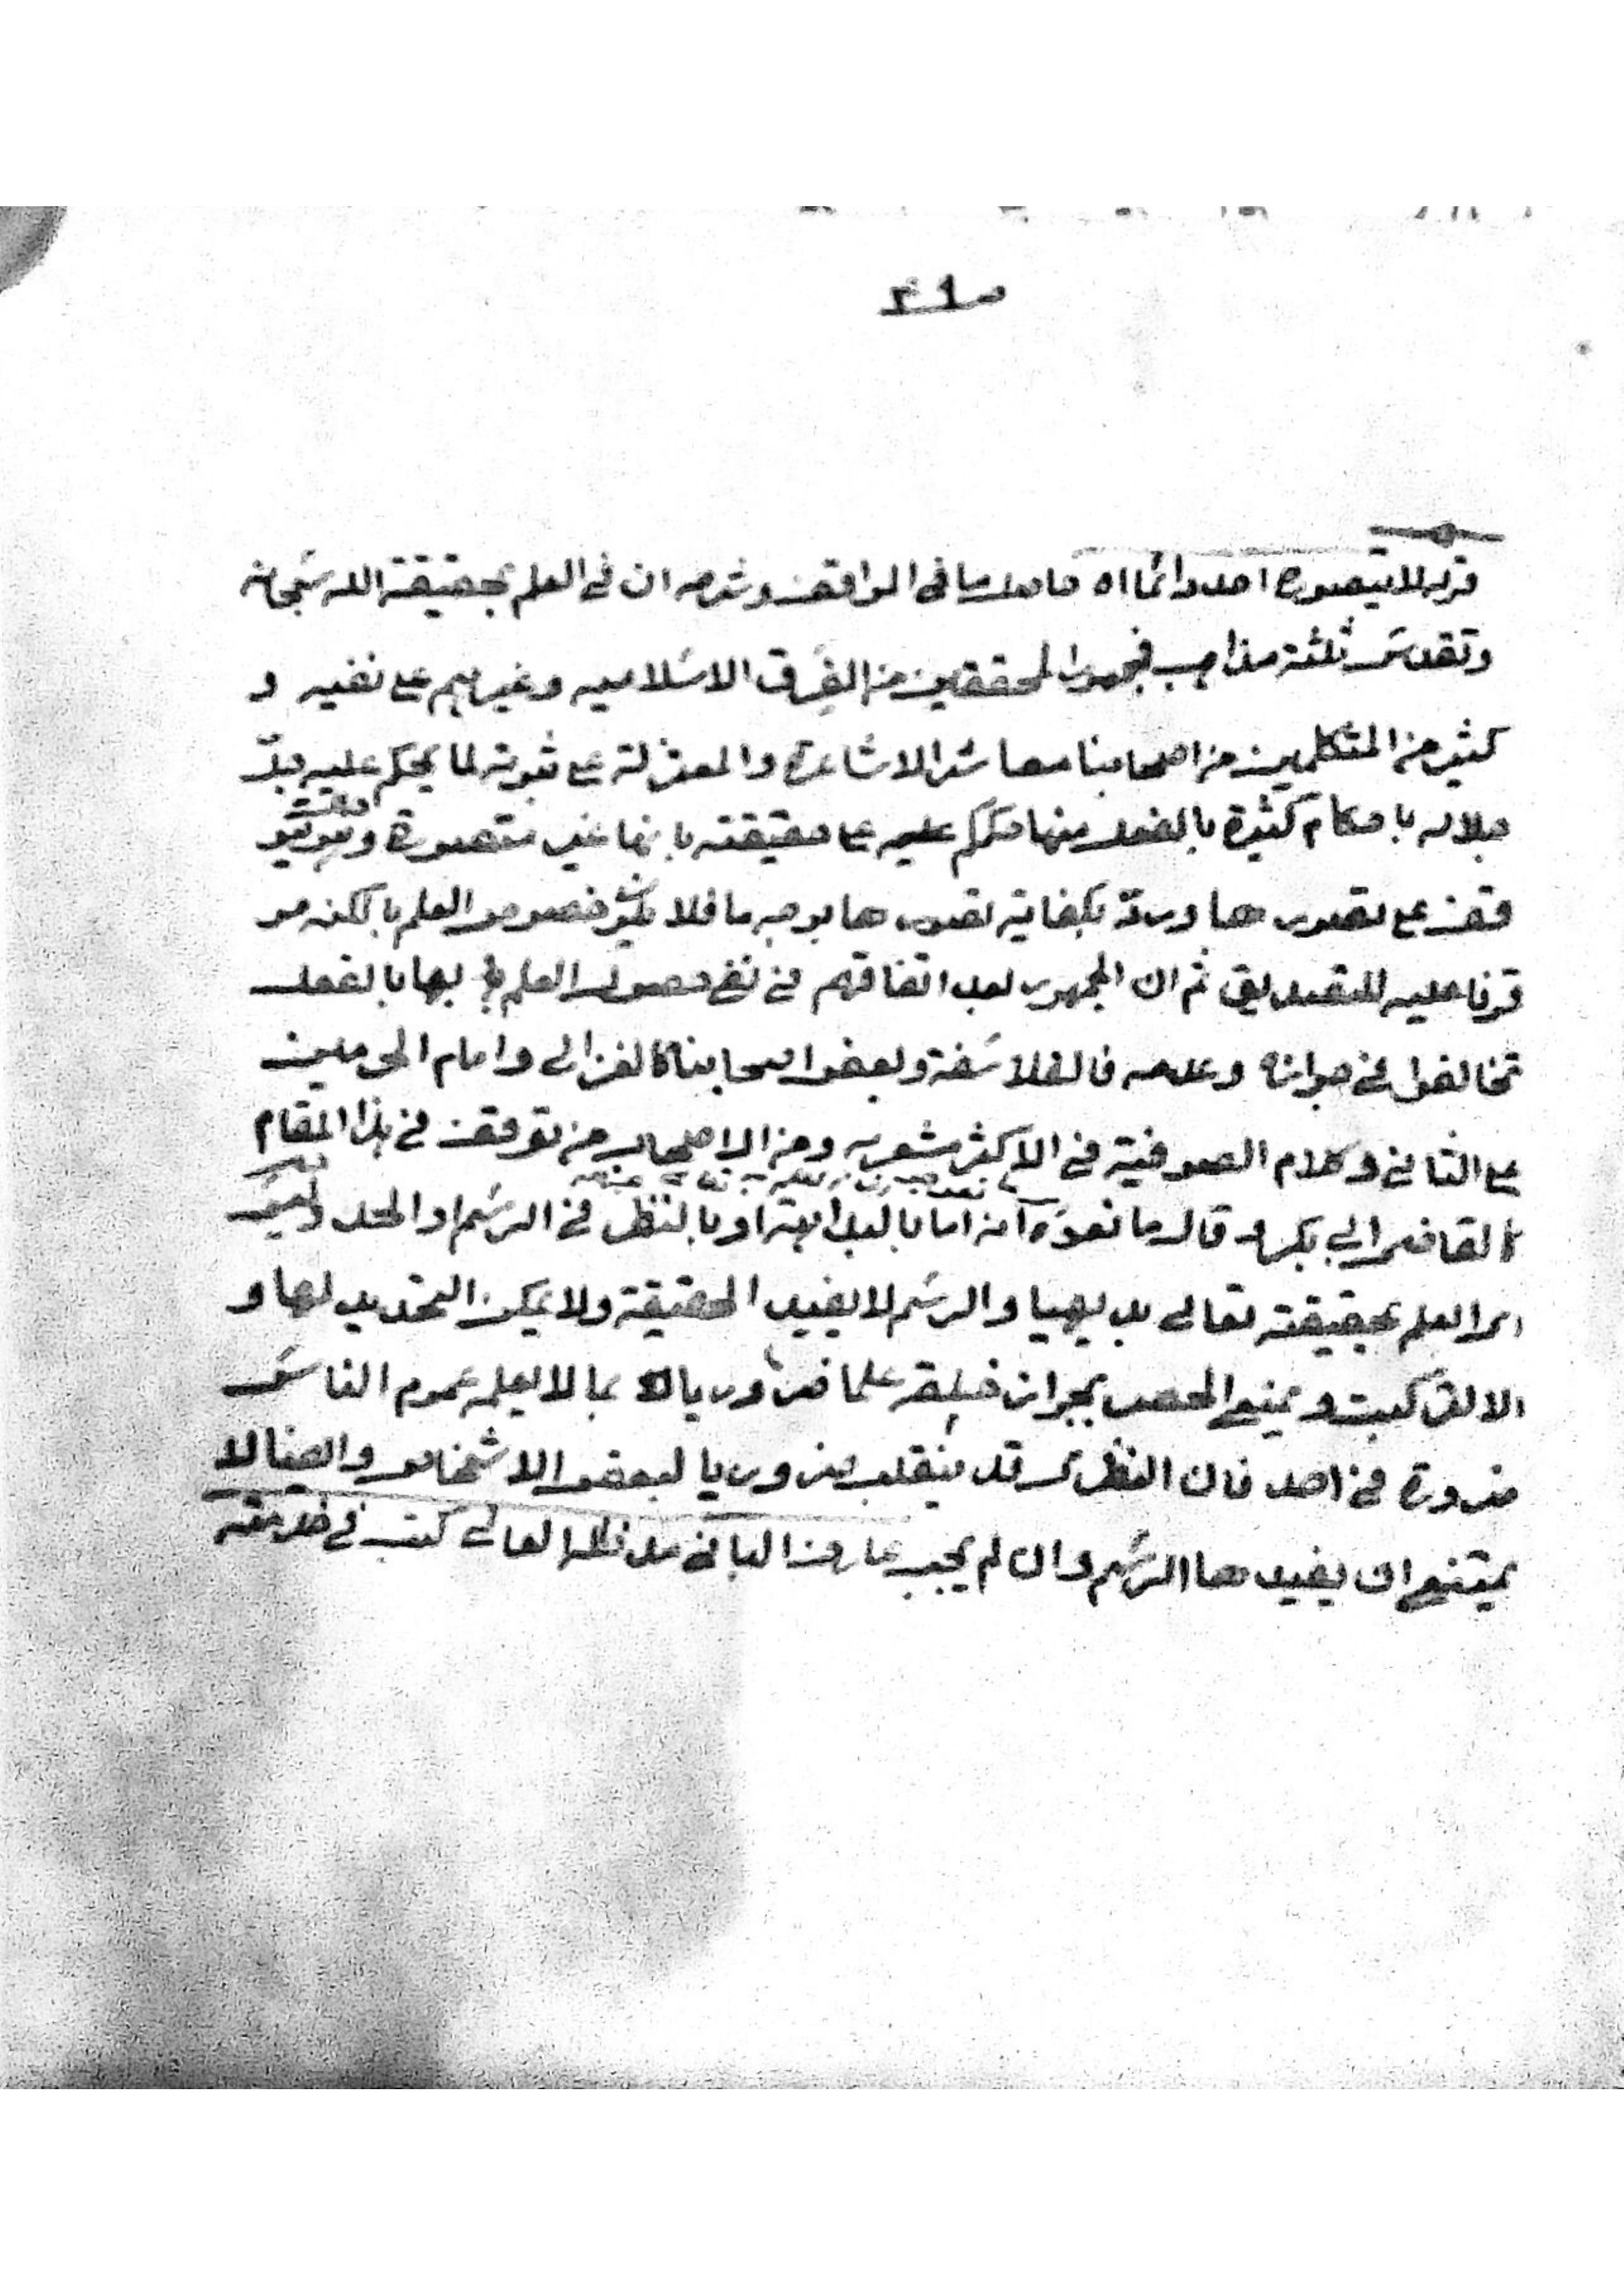 قوله لا يتصوره احد دائما اه حاصل ما فى المواقف وشرحه ان فى العلم بحقيقة الله سبحانه
وتقدس ثلثة مذاهب فجمهور المحققين من الفرق الاسلاميه وغيرهم على نفيه و
كثير من المتكلمين من اصحابنا معاشر الاشاعرة والمعتزلة على ثبوته لما يحكم عليه جل
جلاله باحكام كثيرة بالفعل منها حكمكم عليه على حقيقته بانها غير متصورة وهو يتو
قف على تصورها ورد بكفاية تصورها بوجه ما فلا يكون خصوص العلم بالكنه مو
قوفا عليه للتصديق ثم ان الجمهور بعد اتفاقهم فى نفى حصول العلم بها بالفعل
تخالفوا فى جوازه وعدمه فالفلاسفة وبعض اصحابنا كالغزالى وامام الحرمين
على الثانى وكلام الصوفية فى الاكثر مشعر به ومن الاصحاب من توقف فى هذا المقام
كالقاضى ابى بكر قال ما نصوه انه اما بالبداهة او بالنظر فى الرسم او الحد وليس
العلم بحقيقته تعالى بديهيا والرسم لا يفيد الحقيقة ولا يمكن التحديد لها و
الا لتركبت ويمنع الحصر بجواز خلقه علما ضروريا بما لا يعلمه عموم الناس
ضرورة فى احد فان النظرى قد ينقلب ضروريا لبعض الاشخاص وايضا لا
يمتنع ان يفيدها الرسم وان لم يجب عارف البانى مد ظله العالى كتب فى